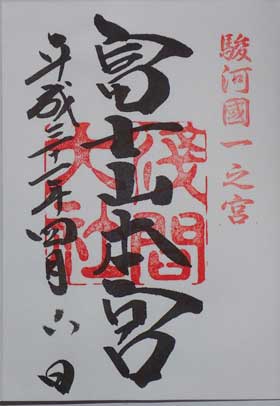 駿河國一之宮
富士山本宮
浅間
大社
平成三十一年四月六日